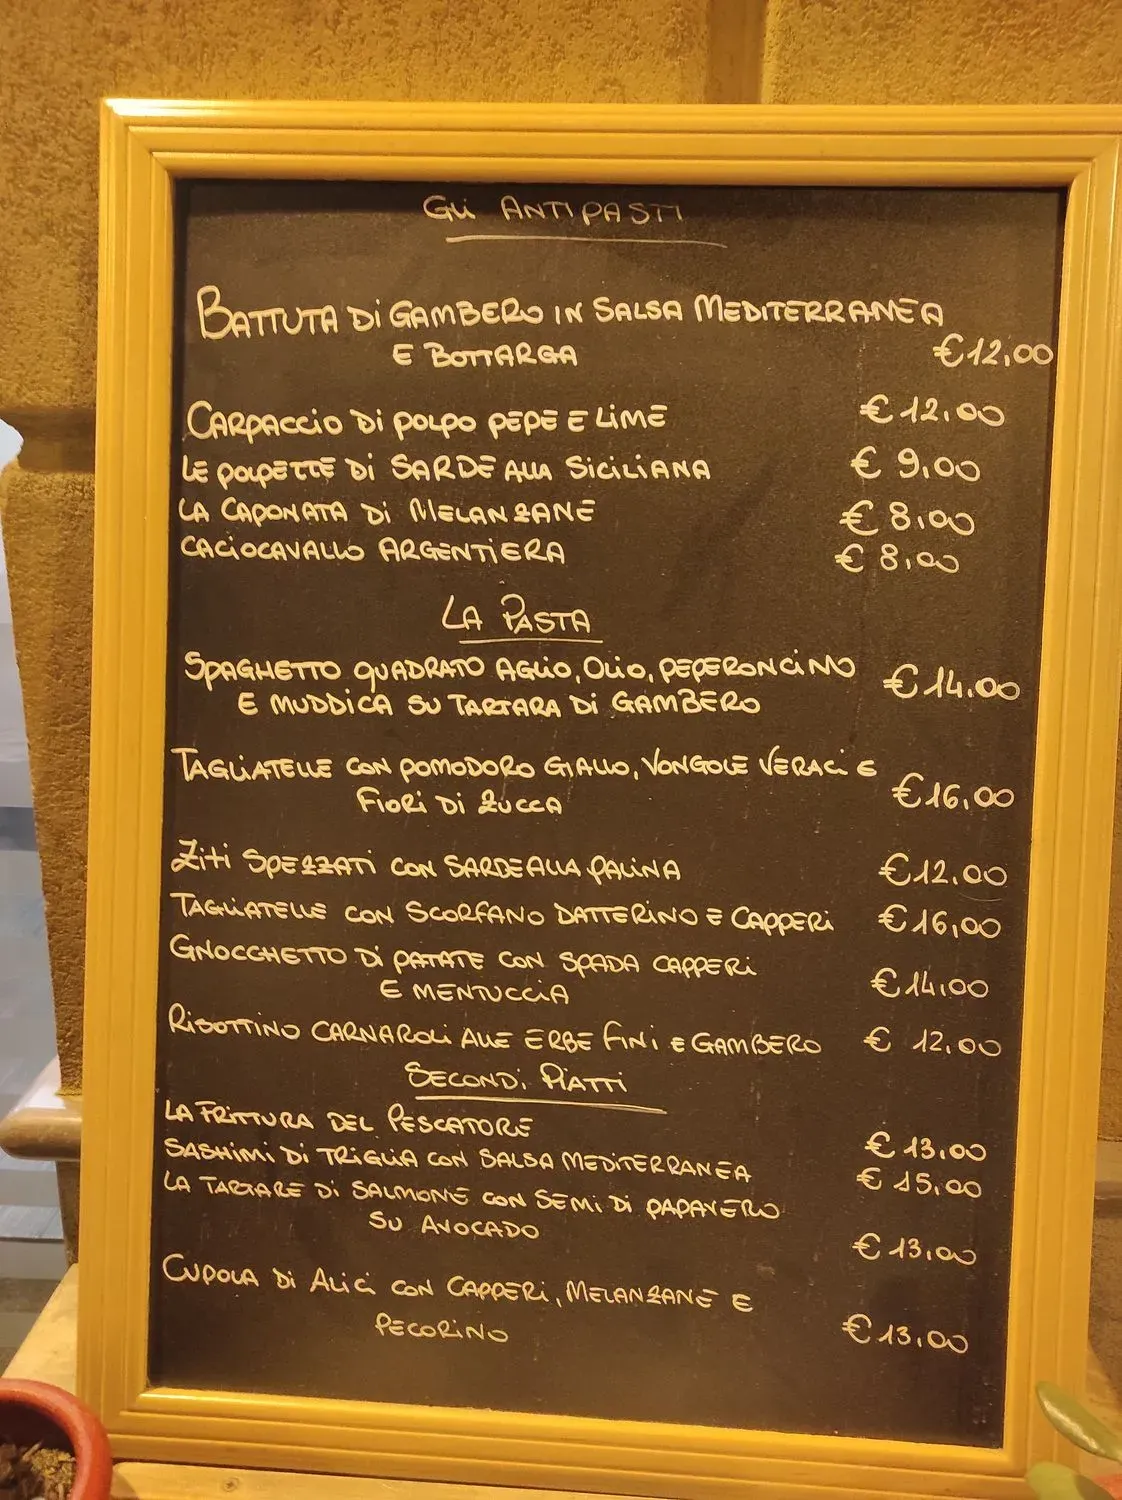 Gli ANTIPASTI
BATTUTA Di GAMBERO IN SALSA MEDITERRANEA
E BOTTARGA
€12,00
CARPACCIO Di POLPO PEPE E LIME € 12,00
LE POLPETTE Di SARDE ALLA SICILIANA € 9,00
LA CAPONATA Di MELANZANE € 8,00
CACIOCAVALLO ARGENTIERA € 8,00
LA PASTA
SPAGHETTO QUADRATO AGLIO, OLIO, PEPERONCINO
E MUDDICA SU TARTARA DI GAMBERO
€14,00
TAGLIATELLE CON POMODORO GIALLO, VONGOLE VERACI E
FIORI DI ZUCCA
€16,00
ZITI SPEZZATI CON SARDE ALLA PALINA €12,00
TAGLIATELLE CON SCORFANO DATTERINO E CAPPERI €16,00
GNOCCHETTO DI PATATE CON SPADA CAPPERI
E MENTUCCIA
€14,00
RISOTTINO CARNAROLI ALLE ERBE FINI E GAMBERO € 12,00
SECONDI PIATTI
LA FRITTURA DEL PESCATORE € 13,00
SASHIMI DI TRIGLIA CON SALSA MEDITERRANEA € 15,00
LA TARTARE DI SALMONE CON SEMI DI PAPAVERO
SU AVOCADO
€13,00
CUPOLA DI ALICI CON CAPPERI, MELANZANE E
PECORINO
€13,00